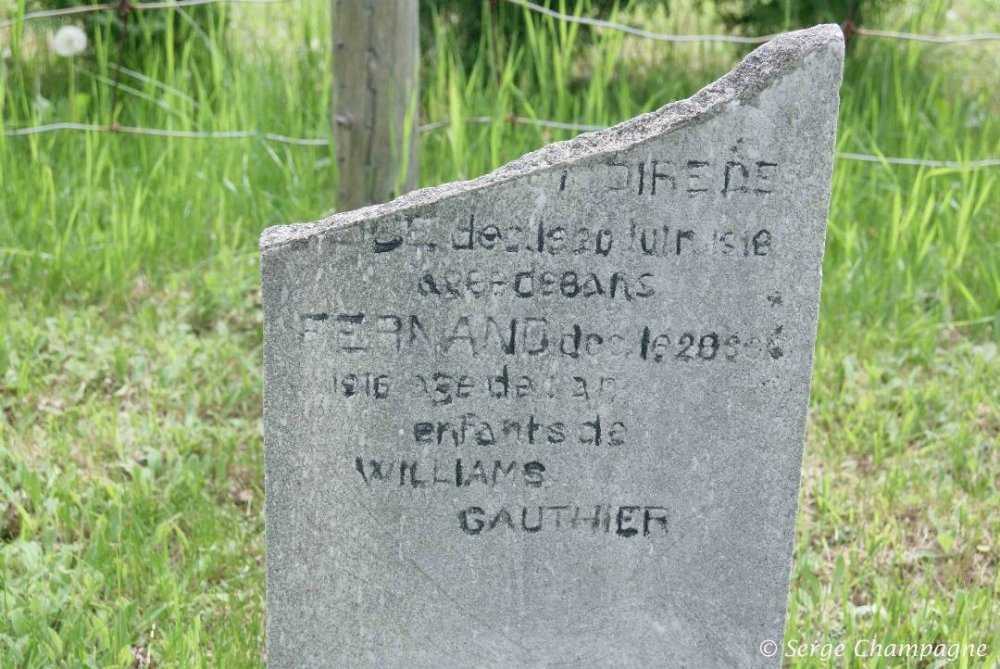 DE
dec. le 20 Juin 1918
agee de 8 ans
FERNAND dec. le 28
1916 age de 1 an
enfants de
WILLIAMS
GAUTHIER
© Serge Champagne